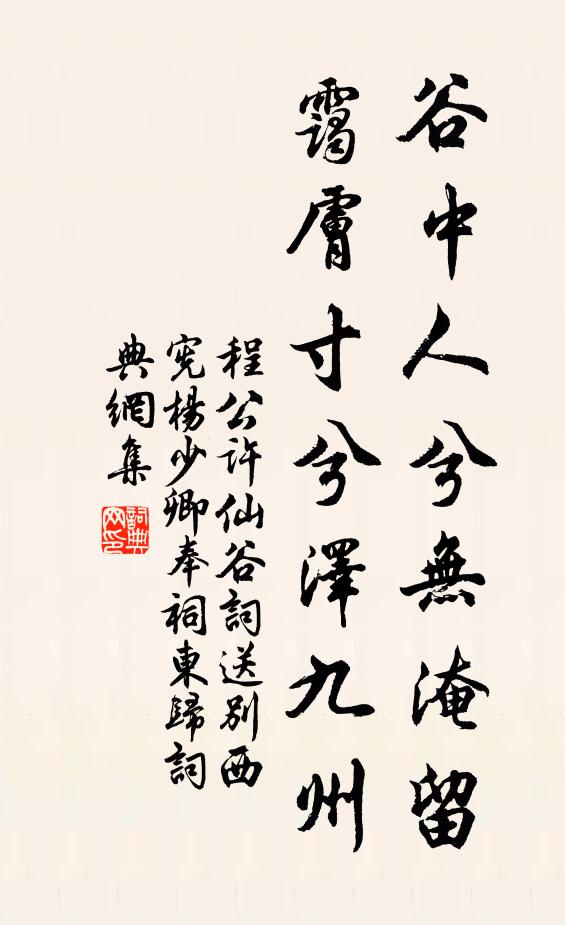 谷中人兮無淹留
靄膚寸兮澤九州
程公許仙谷詞送別西
憲楊少卿奉祠東歸詞
典網集
詞典
网印